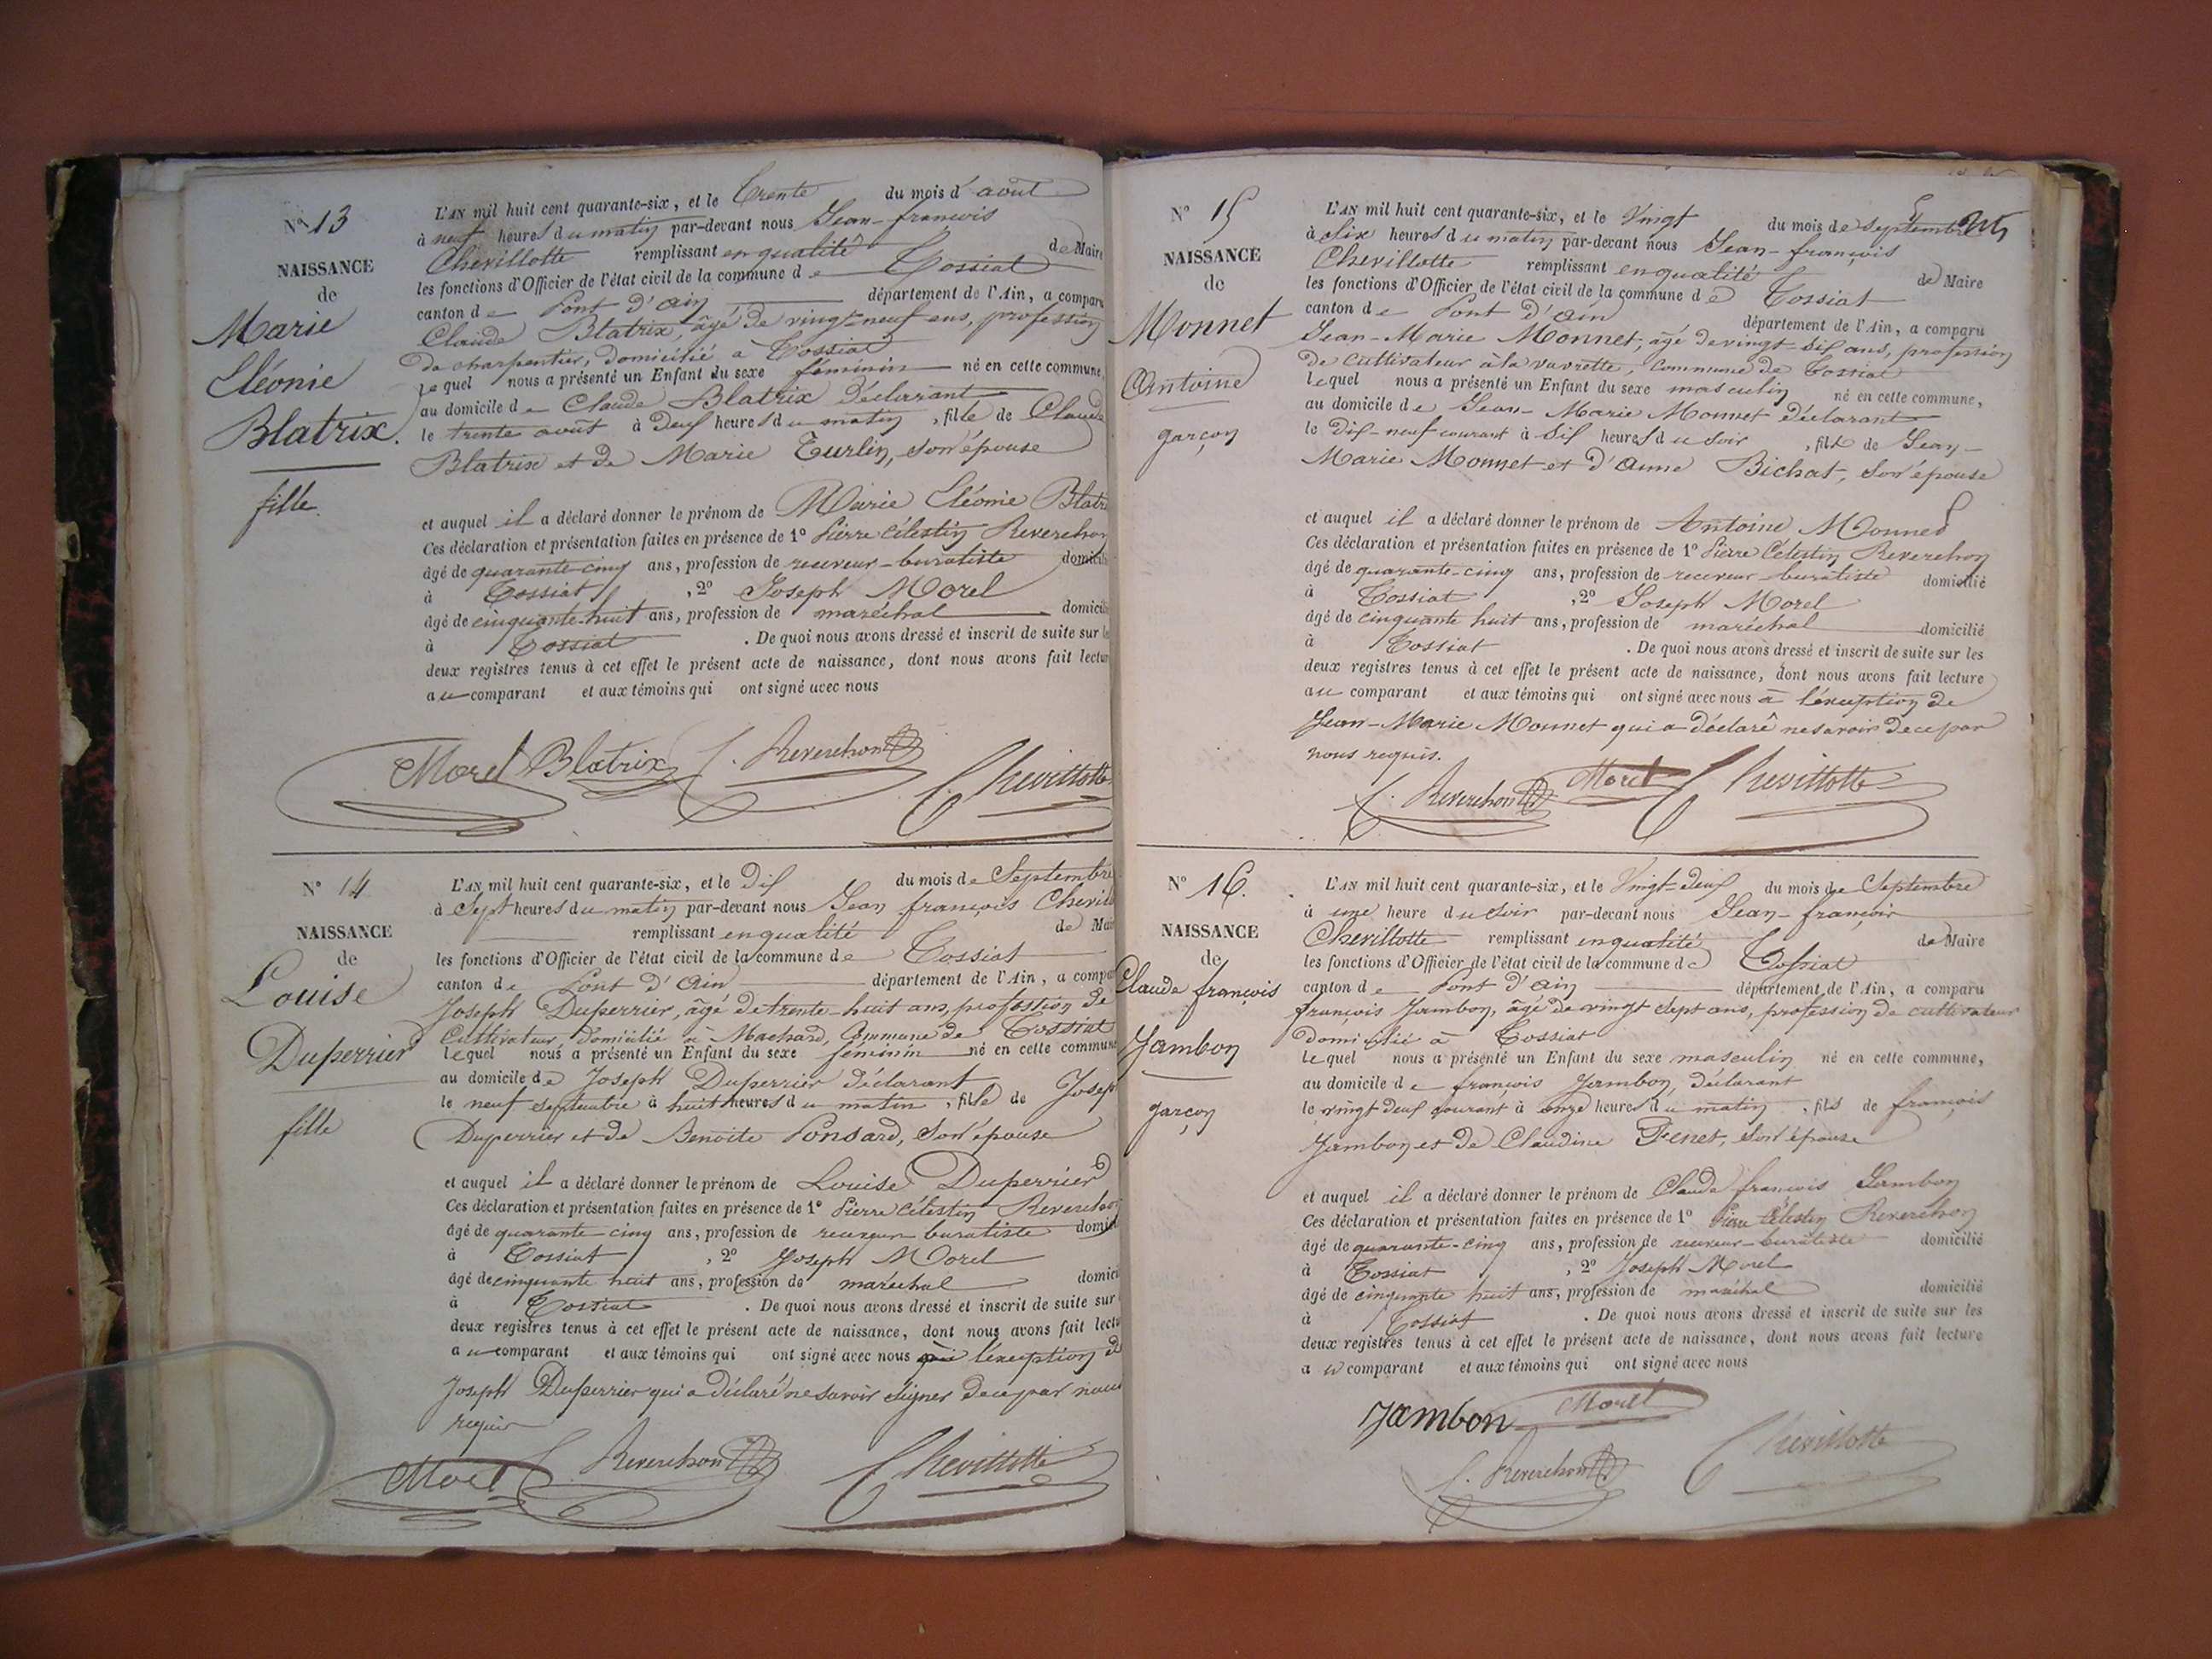 N° 13
NAISSANCE
de
Marie
Cléonie
Blatrix.
fille
L'AN mil huit cent quarante-six, et le Trente du mois d' août
à neuf heures du matin par-devant nous Jean-françois
Chevillotte remplissant en qualité de Maire
les fonctions d'Officier de l'état civil de la commune de Tossiat
canton de Pont d'ain département de l'Ain, a comparu
Claude Blatrix, âgé de vingt-neuf ans, profession
de charpentier, domicilié à Tossiat
lequel nous a présenté un Enfant du sexe féminin né en cette commune,
au domicile de Claude Blatrix déclarant
le trente août à deux heures du matin, fille de Claude
Blatrix et de Marie Turlin, son épouse
et auquel il a déclaré donner le prénom de Marie Cléonie Blatri
Ces déclaration et présentation faites en présence de 1° Pierre Célestin Reverchon
âgé de quarante-cinq ans, profession de receveur-buraliste domicili
à Tossiat, 2° Joseph Morel
âgé de cinquante-huit ans, profession de maréchal domicili
à Tossiat. De quoi nous avons dressé et inscrit de suite sur le
deux registres tenus à cet effet le présent acte de naissance, dont nous avons fait lectur
au comparant et aux témoins qui ont signé avec nous
Morel Blatrix C. Reverchon Chevillotte
N° 14
NAISSANCE
de
Louise
Duperrier
fille
L'AN mil huit cent quarante-six, et le dix du mois de Septembre
à Sept heures du matin par-devant nous Jean françois Chevill
remplissant en qualité de Mai
les fonctions d'Officier de l'état civil de la commune de Tossiat
canton de Pont d'Ain département de l'Ain, a compa
Joseph Duperrier, âgé de trente-huit ans, profession de
Cultivateur, domicilié à Machard, Commune de Tossiat
lequel nous a présenté un Enfant du sexe féminin né en cette commune
au domicile de Joseph Duperrier déclarant
le neuf septembre à huit heures du matin, fille de Josep
Duperrier et de Benoite Ponsard, son épouse
et auquel il a déclaré donner le prénom de Louise Duperrier
Ces déclaration et présentation faites en présence de 1° Pierre Célestin Reverchon
âgé de quarante-cinq ans, profession de receveur buraliste domicil
à Tossiat, 2° Joseph Morel
âgé de cinquante huit ans, profession de maréchal domici
à Tossiat. De quoi nous avons dressé et inscrit de suite sur
deux registres tenus à cet effet le présent acte de naissance, dont nous avons fait lectu
au comparant et aux témoins qui ont signé avec nous l'exception d
Joseph Duperrier qui a déclaré ne savoir signer de ce par nous
requis
Morel C. Reverchon Chevillotte
N° 15
NAISSANCE
de
Monnet
Antoine
garçon
L'AN mil huit cent quarante-six, et le Vingt du mois de Septembre
à Six heures du matin par-devant nous Jean-françois
Chevillotte remplissant en qualité de Maire
les fonctions d'Officier de l'état civil de la commune de Tossiat
canton de Pont d'ain département de l'Ain, a comparu
Jean-Marie Monnet, âgé de vingt-six ans, profession
de Cultivateur à la vavrette, Commune de Tossiat
lequel nous a présenté un Enfant du sexe masculin né en cette commune,
au domicile de Jean-Marie Monnet déclarant
le dix-neuf courant à six heures du soir, fils de Jean-
Marie Monnet et d'Anne Bichat, son épouse
et auquel il a déclaré donner le prénom de Antoine Monnet
Ces déclaration et présentation faites en présence de 1° Pierre Célestin Reverchon
âgé de quarante-cinq ans, profession de receveur-buraliste domicilié
à Tossiat, 2° Joseph Morel
âgé de cinquante huit ans, profession de maréchal domicilié
à Tossiat. De quoi nous avons dressé et inscrit de suite sur les
deux registres tenus à cet effet le présent acte de naissance, dont nous avons fait lecture
au comparant et aux témoins qui ont signé avec nous à l'exception de
Jean-Marie Monnet qui a déclaré ne savoir de ce par
nous requis.
C. Reverchon Morel Chevillotte
N° 16.
NAISSANCE
de
Claude françois
Jambon
garçon
L'AN mil huit cent quarante-six, et le Vingt-deux du mois de Septembre
à une heure du soir par-devant nous Jean-françois
Chevillotte remplissant en qualité de Maire
les fonctions d'Officier de l'état civil de la commune de Tossiat
canton de Pont d'ain département de l'Ain, a comparu
françois Jambon, âgé de vingt sept ans, profession de cultivateur
domicilié à Tossiat
lequel nous a présenté un Enfant du sexe masculin né en cette commune,
au domicile de françois Jambon, déclarant
le vingt deux courant à onze heures du matin, fils de françois
Jambon et de Claudine Fenet, son épouse
et auquel il a déclaré donner le prénom de Claude françois Jambon
Ces déclaration et présentation faites en présence de 1° Pierre Célestin Reverchon
âgé de quarante-cinq ans, profession de receveur-buraliste domicilié
à Tossiat, 2° Joseph Morel
âgé de cinquante huit ans, profession de maréchal domicilié
à Tossiat. De quoi nous avons dressé et inscrit de suite sur les
deux registres tenus à cet effet le présent acte de naissance, dont nous avons fait lecture
au comparant et aux témoins qui ont signé avec nous
Jambon Morel
C. Reverchon Chevillotte